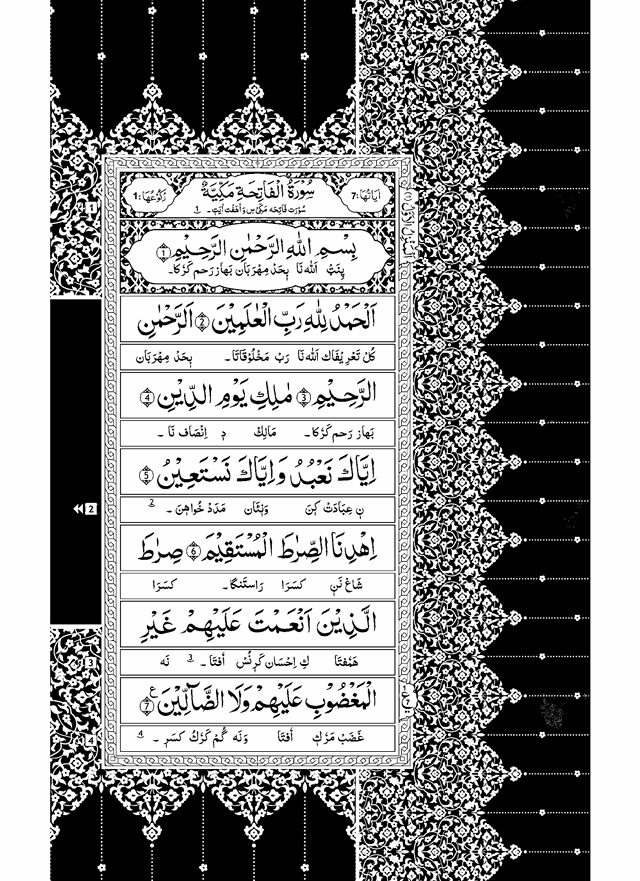 اٰیَاتُهَا:7 سُوْرَةُ الْفَاتِحَةِ مَكِّيَّةٌ رُكُوْعُهَا:1
سُوْرَت فَاتِحَه مَكِّىْ س وَ اَهفت آيَتِ۔
بِسْمِ اللهِ الرَّحْمٰنِ الرَّحِيْمِ ①
پِنَٹْ اَللّٰه نَا بِحَدْ مِهْرَبَان بَهَاز رَحم كَرُكَا۔
اَلْحَمْدُ لِلّٰهِ رَبِّ الْعٰلَمِيْنَ ② الرَّحْمٰنِ
كُلْ تَعْرِيْفَاك اَللّٰه نَا رَبْ مَخْلُوْقَاتَا۔ بِحَدْ مِهْرَبَان
الرَّحِيْمِ ③ مٰلِكِ يَوْمِ الدِّيْنِ ④
بَهَاز رَحم كَرُكَا۔ مَالِكْ دٖ اِنْصَاف نَا ۔
اِيَّاكَ نَعْبُدُ وَاِيَّاكَ نَسْتَعِيْنُ ⑤
نٖ عِبَادَتْ كٖنَ وَنٖيْآن مَدَدْ خُوَاهِنَ ۔ 2
2
اِهْدِنَا الصِّرٰطَ الْمُسْتَقِيْمَ ⑥ صِرٰطَ
شَاغ نَنٖ كَسَرَا رَاستَنْگَا۔ كَسَرَا
الَّذِيْنَ اَنْعَمْتَ عَلَيْهِمْ غَيْرِ
هَمُفتَا كِ اِحْسَان كَرٖنُسْ اُفتَا ۔ 3 نَه
3
الْمَغْضُوْبِ عَلَيْهِمْ وَلَا الضَّآلِّيْنَ ⑦ ع
غَضَبْ مَرُكٖ اُفتَا وَنَه گُمْ كَرُكْ كَسَرٖ ۔ 4
4